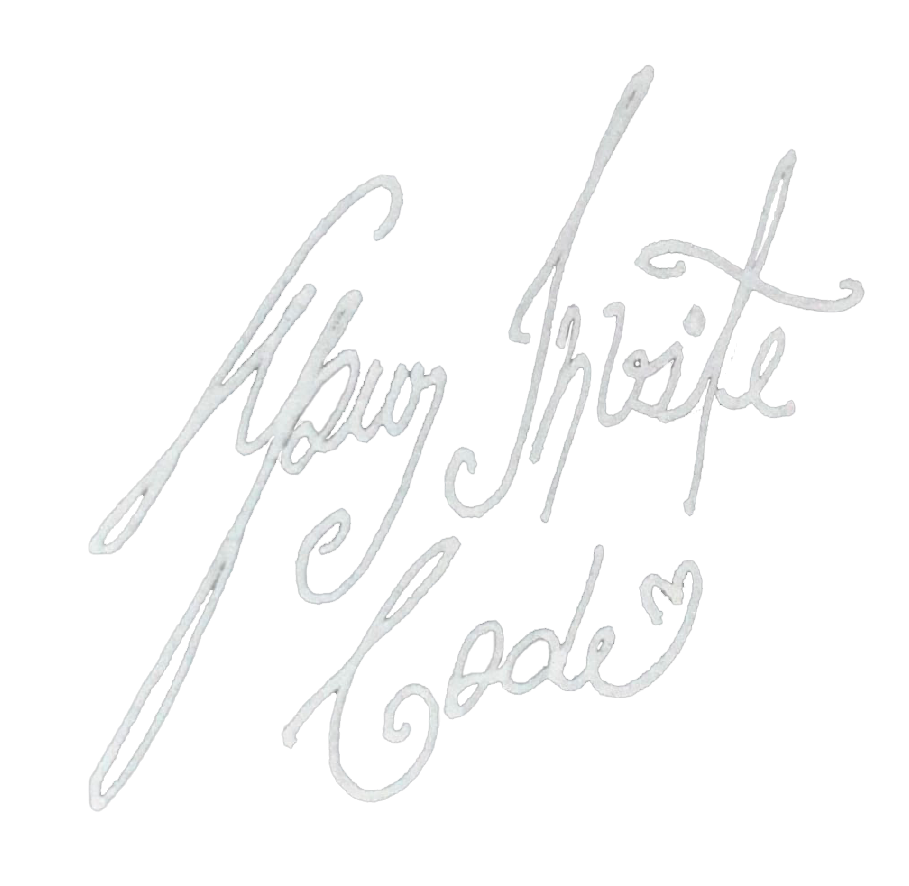 Your Invite
Code